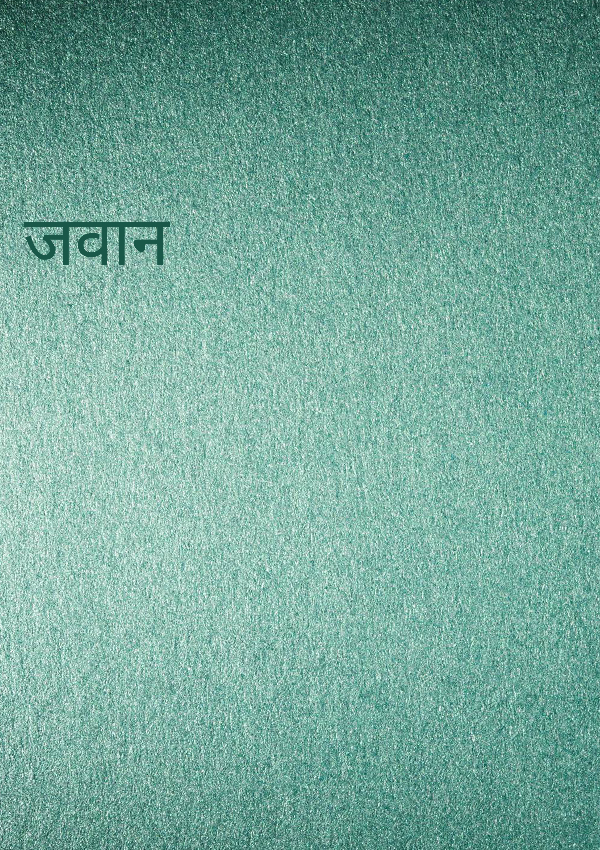 जवान